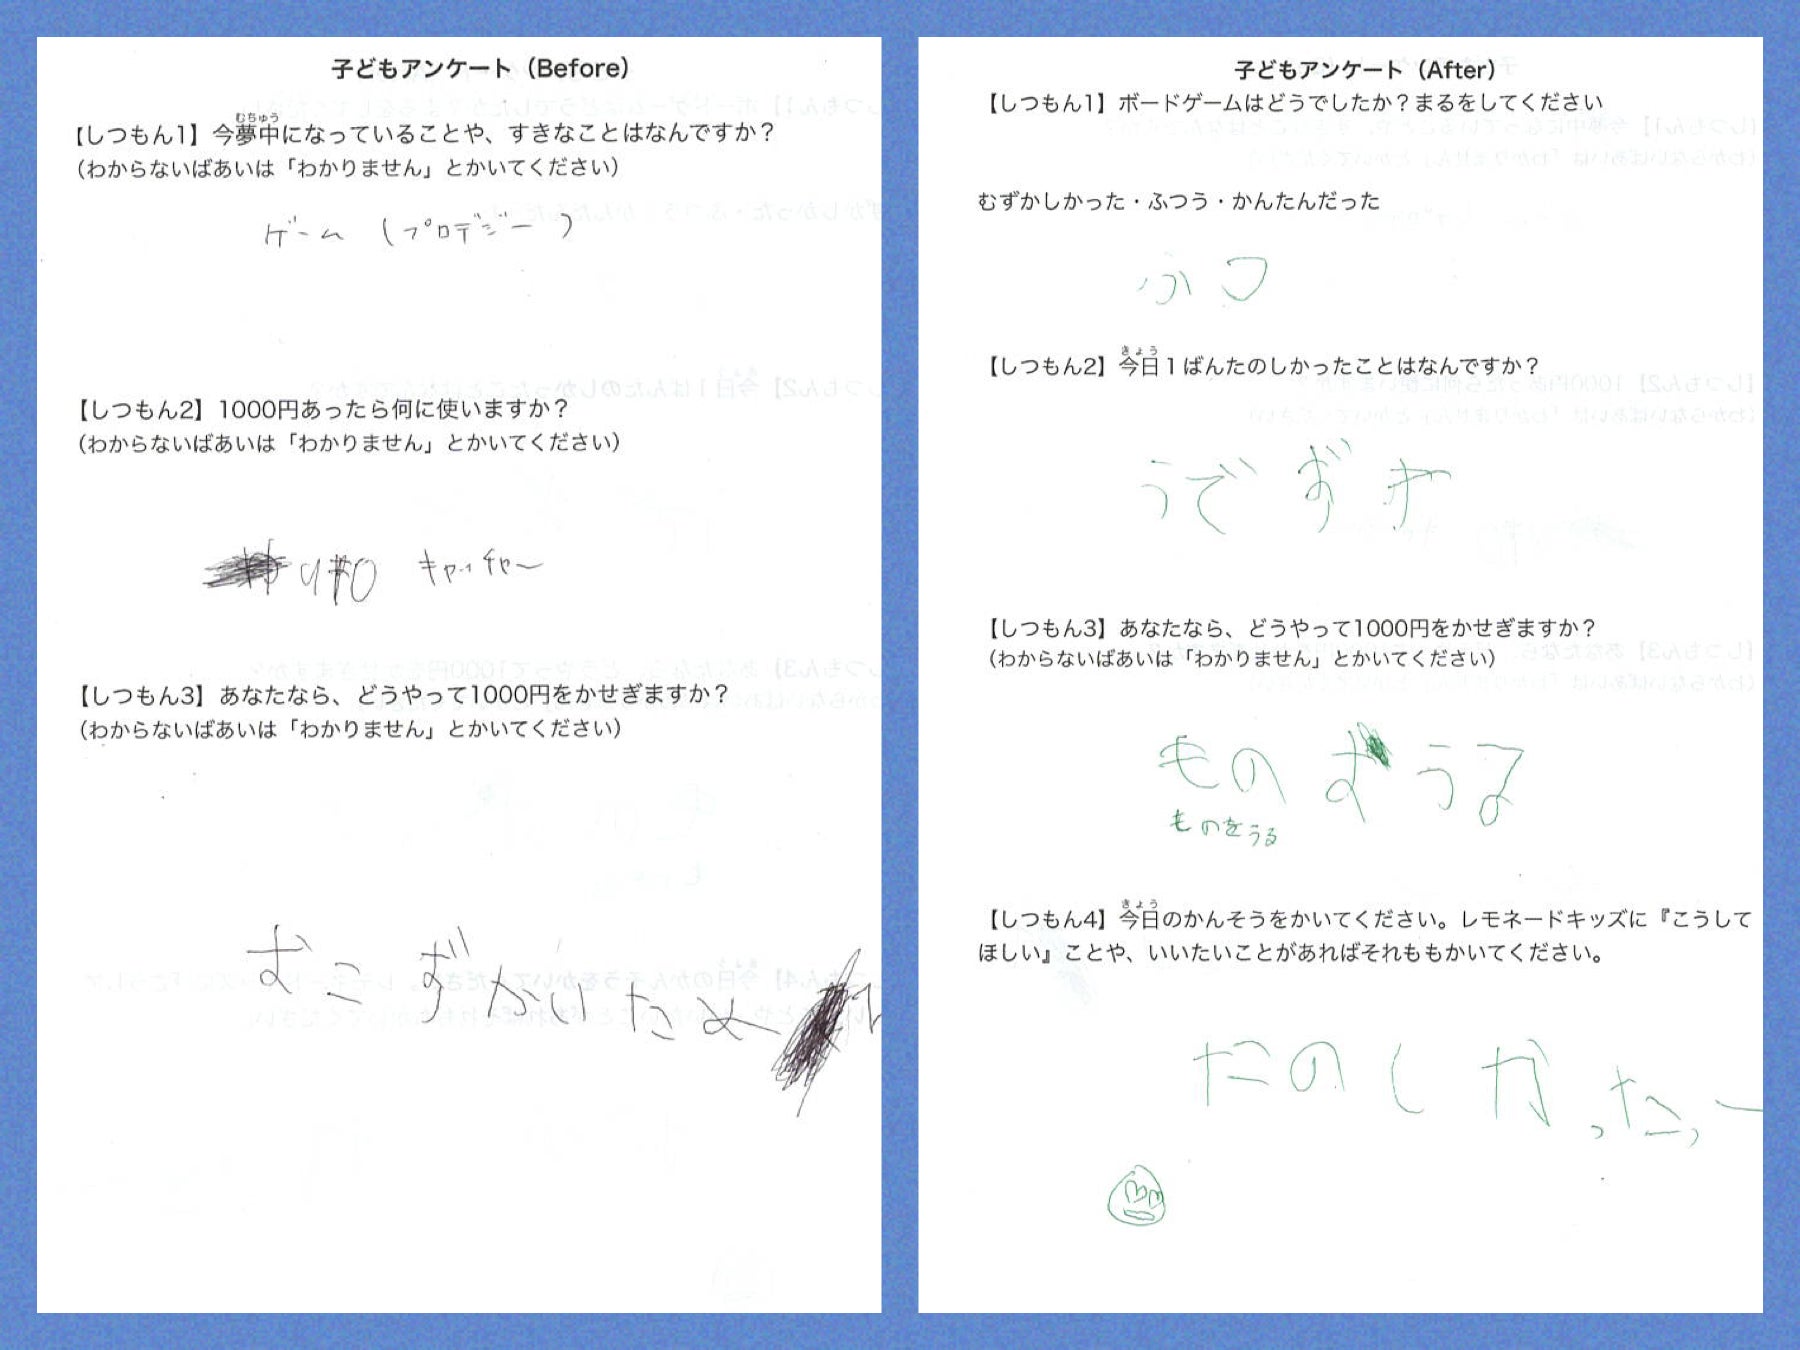 子どもアンケート（Before）
【しつもん1】今夢中になっていることや、すきなことはなんですか？
むちゅう
（わからないばあいは「わかりません」とかいてください）
ゲーム（プロデジー）
【しつもん2】1000円あったら何に使いますか？
（わからないばあいは「わかりません」とかいてください）
キャッチャー
【しつもん3】あなたなら、どうやって1000円をかせぎますか？
（わからないばあいは「わかりません」とかいてください）
子どもアンケート（After）
【しつもん1】ボードゲームはどうでしたか？まるをしてください
むずかしかった・ふつう・かんたんだった
ふつ
【しつもん2】今日１ばんたのしかったことはなんですか？
きょう
【しつもん3】あなたなら、どうやって1000円をかせぎますか？
（わからないばあいは「わかりません」とかいてください）
ものをうる
【しつもん4】今日のかんそうをかいてください。レモネードキッズに『こうして
きょう
ほしい』ことや、いいたいことがあればそれももかいてください。
たのしかった